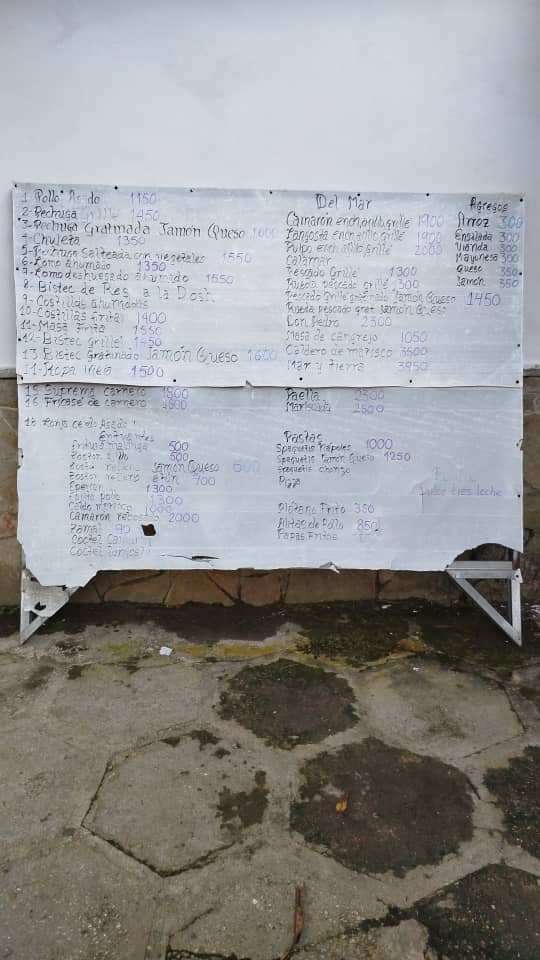 1 Pollo Asado 1150
2- Pechuga Grille 1450
3- Pechuga Gratinada Jamón Queso 1600
4- Chuleta 1350
5- Pechuga Salteada con vegetales 1550
6- Lomo ahumado 1350
7- Lomo deshuesado ahumado 1550
8- Bistec de Res a la
9- Costillas ahumadas
10- Costillas fritas 1400
11- Masa Frita 1550
12- Bistec Grille 1450
13 Bistec Gratinado Jamón Queso 1600
14- Ropa Vieja 1500
15 Suprema carnero 1800
16 Fricase de carnero 1800
18 Lonja cerdo Asado
Entrantes
Fritura malanga 500
Toston 500
relleno Jamón Queso 600
Toston relleno atún 700
1300
Fajita pollo 1300
Caldo marisco 1000
Camarón rebozado 2000
Tamal 90
Coctel Camarón
Coctel
Del Mar
Camarón ench, grille 1900
Langosta ench, grille 1900
Pulpo ench, grille 2000
Calamar
Pescado Grille 1300
Rueda pescado grille 1300
Pescado Grille gratinado Jamón Queso 1450
Rueda pescado grat Jamón Queso
Don Pedro 2300
Masa de cangrejo 1050
Caldero de marisco 3500
Mar y tierra 3950
Paella 2300
Mariscada 2500
Pastas
Spaguetis Nápoles 1000
Spaguetis Jamón Queso 1250
Spaguetis chorizo
Pizza
Plátano Frito 350
Alitas de Pollo 850
Papas Fritas
Agregos
Arroz 300
Ensalada 300
Vianda 300
Mayonesa 300
Queso 350
Jamón 350
Dulce tres leche